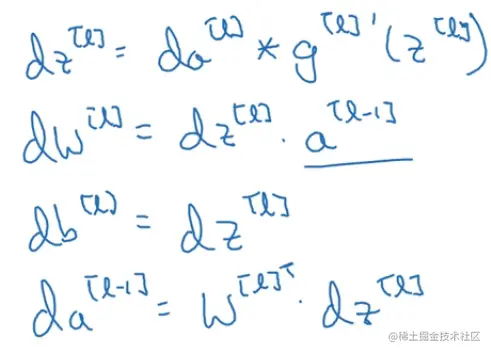 dz^[l] = da^[l] * g^[l]'(z^[l])
dw^[l] = dz^[l] · a^[l-1]
db^[l] = dz^[l]
da^[l-1] = w^[l]T · dz^[l]
@稀土掘金技术社区